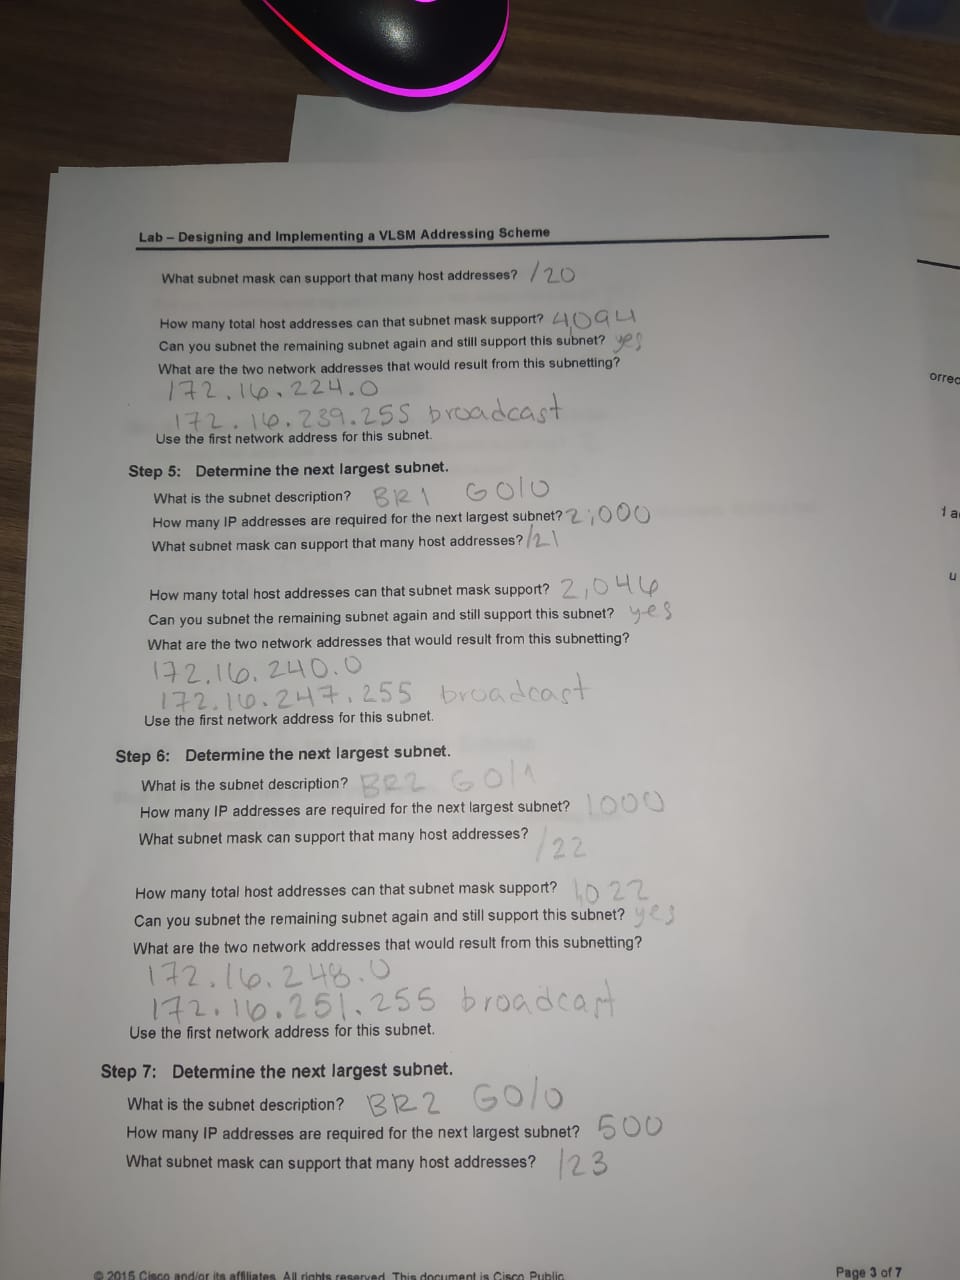 Lab – Designing and Implementing a VLSM Addressing Scheme
What subnet mask can support that many host addresses? /20
How many total host addresses can that subnet mask support? 4094
Can you subnet the remaining subnet again and still support this subnet? yes
What are the two network addresses that would result from this subnetting?
172.16.224.0
172.16.239.255 broadcast
Use the first network address for this subnet.
orrec
Step 5: Determine the next largest subnet.
What is the subnet description? BR1 G0/0
How many IP addresses are required for the next largest subnet? 2,000
What subnet mask can support that many host addresses? /21
1 a
u
How many total host addresses can that subnet mask support? 2,046
Can you subnet the remaining subnet again and still support this subnet? yes
What are the two network addresses that would result from this subnetting?
172.16.240.0
172.16.247.255 broadcast
Use the first network address for this subnet.
Step 6: Determine the next largest subnet.
What is the subnet description? BR2 G0/1
How many IP addresses are required for the next largest subnet? 1000
What subnet mask can support that many host addresses?
/22
How many total host addresses can that subnet mask support? 1,022
Can you subnet the remaining subnet again and still support this subnet? yes
What are the two network addresses that would result from this subnetting?
172.16.248.0
172.16.251.255 broadcast
Use the first network address for this subnet.
Step 7: Determine the next largest subnet.
What is the subnet description? BR2 G0/0
How many IP addresses are required for the next largest subnet? 500
What subnet mask can support that many host addresses? /23
© 2015 Cisco and/or its affiliates. All rights reserved. This document is Cisco Public.
Page 3 of 7